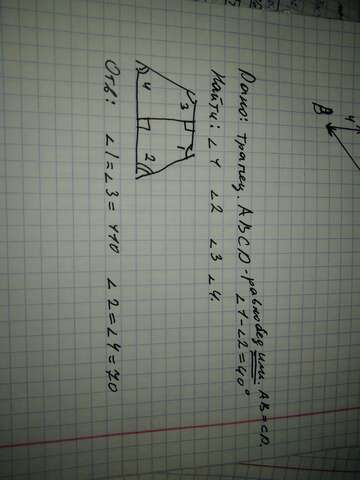 Дано: трапец. ABCD - равнобед или. AB = CD.
∠1 - ∠2 = 40°
Найти: ∠1 ∠2 ∠3 ∠4.
3 1
4 2
Отв: ∠1 = ∠3 = 110 ∠2 = ∠4 = 70
B 4